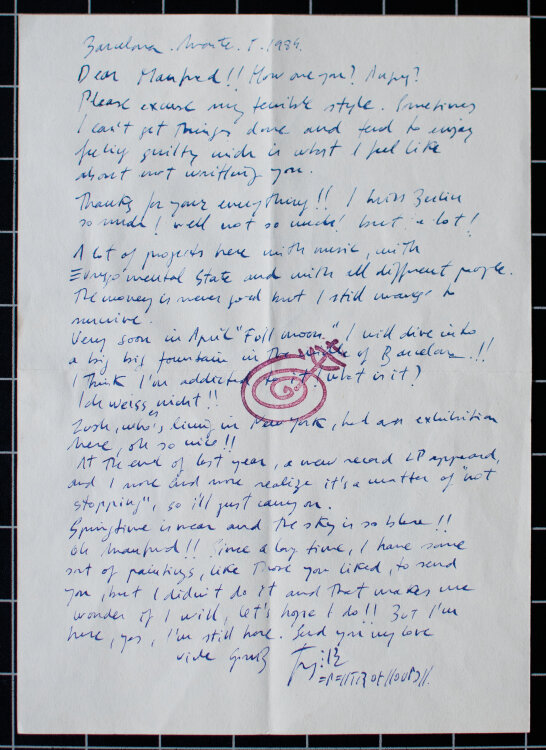 Barcelona . Marte . 5 . 1984.
Dear Manfred!! How are you? Angry?
Please excuse my terrible style. Sometimes
I can't get things done and tend to enjoy
feeling guilty wich is what I feel like
about not writting you.
Thanks for your everything!! I miss Berlin
so much! well not so much! but a lot!
A lot of projects here with music, with
mental State and with all different people.
The money is never good but I still manage to
survive.
Very soon in April "Full moon" I will dive into
a big big fountain in the middle of Barcelona!!
I think I'm addicted to it! what is it?
Ich weiss nicht!!
Zush, who's living in New York, had an exhibition
here, oh so nice!!
At the end of last year, a new record LP appeared,
and I more and more realize it's a matter of "not
stopping", so i'll just carry on.
Springtime is near and the sky is so blue!!
oh Manfred!! Since a long time, I have some
sort of paintings, like those you liked, to send
you, but I didn't do it and that makes me
wonder if I will, let's hope I do!! But I'm
here, yes, I'm still here. Send you my love
viele Gruß